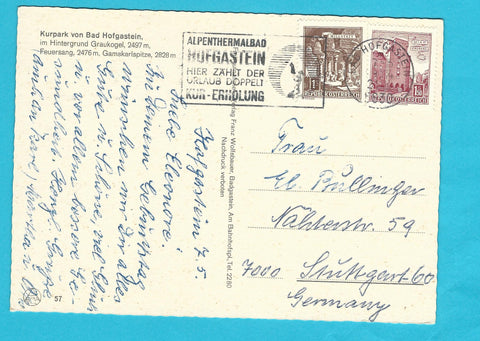 Kurpark von Bad Hofgastein,
im Hintergrund Graukogel, 2497 m,
Feuersang, 2476 m, Gamskarlspitze, 2828 m
ALPENTHERMALBAD
HOFGASTEIN
HIER ZÄHLT DER
URLAUB DOPPELT
KUR-ERHOLUNG
HOFGASTEIN
REPUBLIK ÖSTERREICH
Verlag Franz Wolfsbauer, Badgastein, Am Bahnhofspl., Tel. 2280
Nachdruck verboten
Hofgastein 7.5.
Liebe Eleonore!
Zu Deinem Geburtstag
wünschen wir Dir alles
Gute u. Schöne, viel Glück
u. vor allem bessere Ge-
sundheit. Herzl. Grüße
57
Frau
El. Püllinger
Nählerstr. 59
7000 Stuttgart 60
Germany